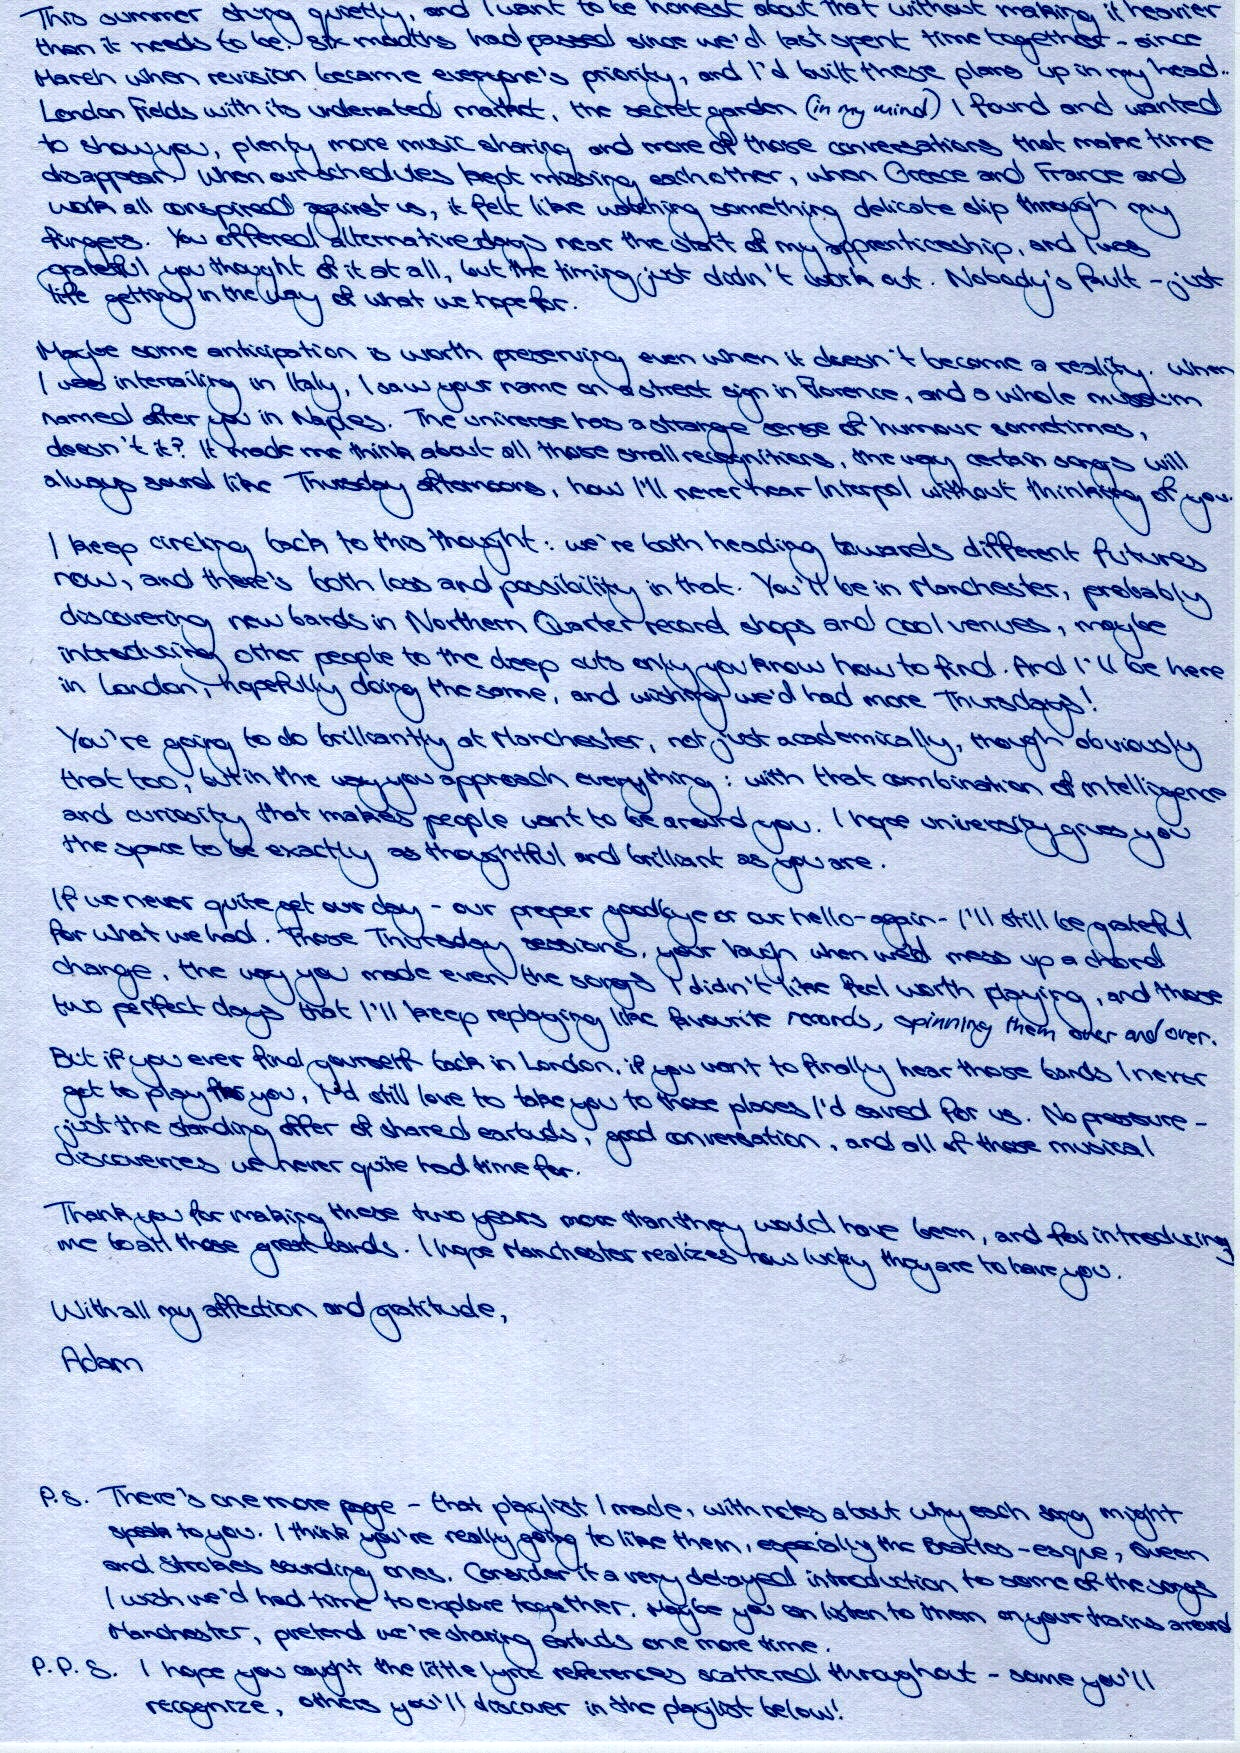 This summer stung quietly, and I want to be honest about that without making it heavier
than it needs to be. Six months had passed since we'd last spent time together - since
March when revision became everyone's priority, and I'd built these plans up in my head..
London Fields with its underrated market, the secret garden (in my mind) I found and wanted
to show you, plenty more music sharing and more of those conversations that make time
disappear. When our schedules kept missing each other, when Greece and France and
work all conspired against us, it felt like watching something delicate slip through my
fingers. You offered alternative days near the start of my apprenticeship, and I was
grateful you thought of it at all, but the timing just didn't work out. Nobody's fault - just
life getting in the way of what we hope for.
Maybe some anticipation is worth preserving even when it doesn't become a reality. When
I was interrailing in Italy, I saw your name on a street sign in Florence, and a whole museum
named after you in Naples. The universe has a strange sense of humour sometimes,
doesn't it? It made me think about all those small recognitions, the way certain songs will
always sound like Thursday afternoons, how I'll never hear Interpol without thinking of you.
I keep circling back to this thought: we're both heading towards different futures
now, and there's both loss and possibility in that. You'll be in Manchester, probably
discovering new bands in Northern Quarter record shops and cool venues, maybe
introducing other people to the deep cuts only you know how to find. And I'll be here
in London, hopefully doing the same, and wishing we'd had more Thursdays!
You're going to do brilliantly at Manchester, not just academically, though obviously
that too, but in the way you approach everything: with that combination of intelligence
and curiosity that makes people want to be around you. I hope university gives you
the space to be exactly as thoughtful and brilliant as you are.
If we never quite get our day - our proper goodbye or our hello-again - I'll still be grateful
for what we had. Those Thursday sessions, your laugh when we'd mess up a chord
change, the way you made even the songs I didn't like feel worth playing, and those
two perfect days that I'll keep replaying like favourite records, spinning them over and over.
But if you ever find yourself back in London, if you want to finally hear those bands I never
got to play for you, I'd still love to take you to those places I'd saved for us. No pressure -
just the standing offer of shared earbuds, good conversation, and all of those musical
discoveries we never quite had time for.
Thank you for making these two years more than they would have been, and for introducing
me to all those great bands. I hope Manchester realizes how lucky they are to have you.
With all my affection and gratitude,
Adam
P.S. There's one more page - that playlist I made, with notes about why each song might
speak to you. I think you're really going to like them, especially the Beatles-esque, Queen
and Strokes sounding ones. Consider it a very delayed introduction to some of the songs
I wish we'd had time to explore together. Maybe you can listen to them on your trains around
Manchester, pretend we're sharing earbuds one more time.
P.P.S. I hope you caught the little lyric references scattered throughout - some you'll
recognize, others you'll discover in the playlist below!